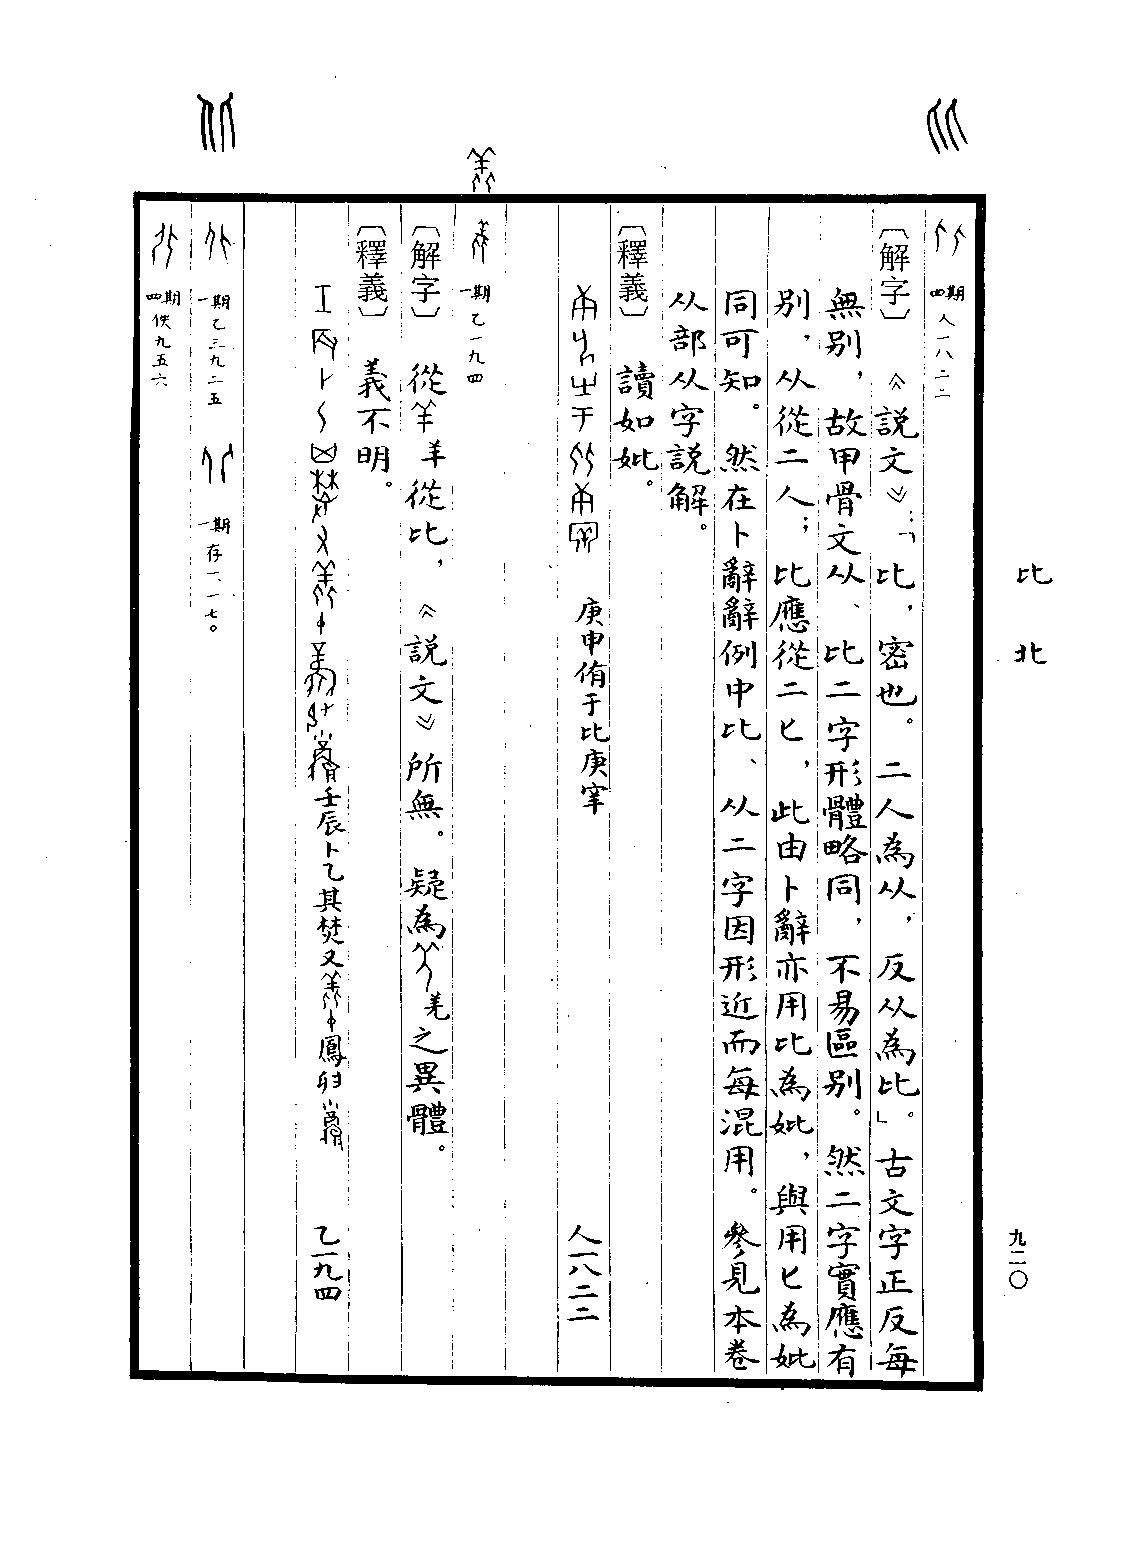 比
北
九二〇
四期
人一八二二
〔解字〕《説文》：「比，密也。二人為从，反从為比」。古文字正反每
無别，故甲骨文从、比二字形體略同，不易區别。然二字實應有
别，从從二人；比應從二匕，此由卜辭亦用比為妣，與用匕為妣
同可知。然在卜辭辭例中比、从二字因形近而每混用。參見本卷
从部从字説解。
〔釋義〕讀如妣。
庚申侑于比庚䍧 人一八二二
一期
乙一九四
〔解字〕從羊從比，《説文》所無。疑為羌之異體。
〔釋義〕義不明。
壬辰卜乙其焚又 鳳 乙一九四
一期
乙三九二五
一期
存一、一一七。
四期
佚九五六